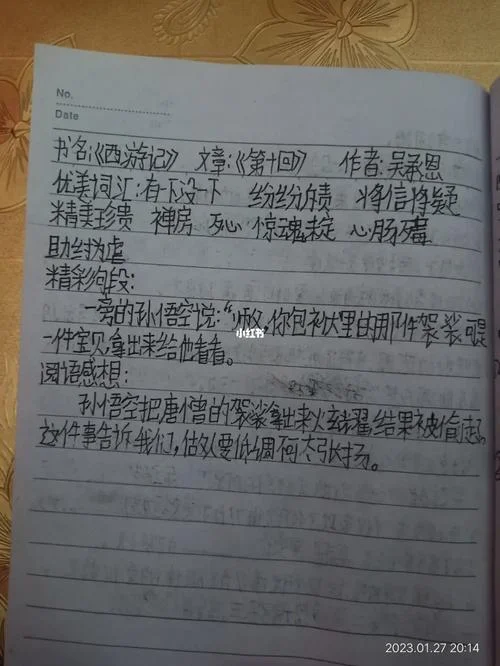 No.
Date
书名:《西游记》 文章:《第十回》 作者:吴承恩
优美词汇:有一下没一下 纷纷夸赞 将信将疑
精美珍贵 禅房 死心 惊魂未定 心肠歹毒
助纣为虐
精彩句段:
一旁的孙悟空说:“师父,你包袱里的那件袈裟可是
一件宝贝拿出来给他看看。
阅语感想:
孙悟空把唐僧的袈裟拿出来火玄耀结果被偷走
这件事告诉我们,做人要低调不太张扬。
小红书
2023.01.27 20:14